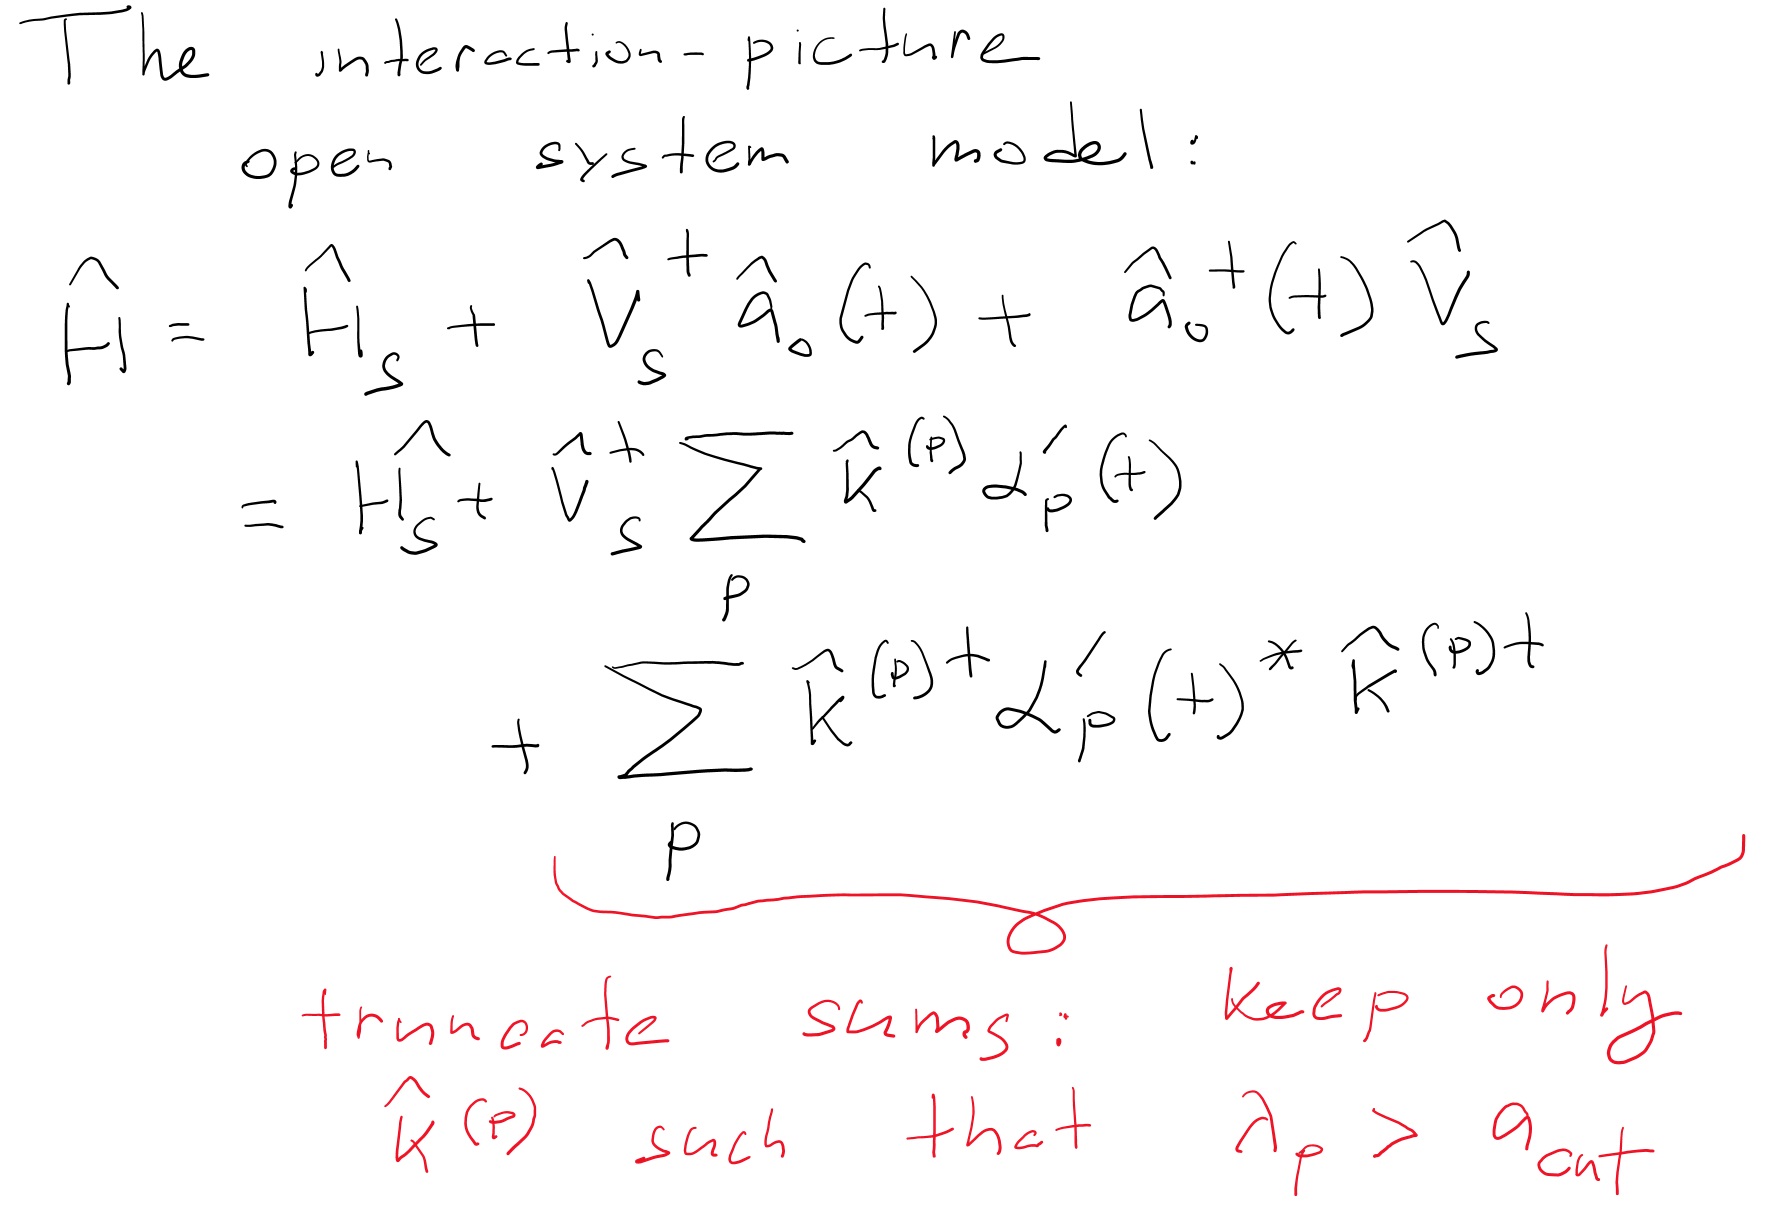 The interaction-picture
open system model:
Ĥ = Ĥ_s + V̂_s^† â_0(t) + â_0^†(t) V̂_s
= Ĥ_s + V̂_s^† ∑_p k̂^(p) α′_p(t)
+ ∑_p k̂^(p)† α′_p(t)^* k̂^(p)†
truncate sums: keep only
k̂^(p) such that λ_p > a_cut